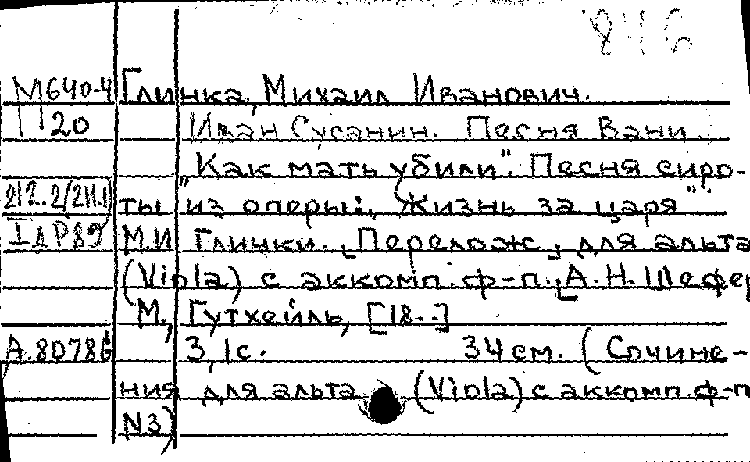 846
М640-4 Глинка, Михаил Иванович.
П20 Иван Сусанин. Песня Вани
"Как мать убили". Песня сиро-
212.2/(211.1) ты из оперы: "Жизнь за царя"
М.И Глинки. [Перелож.] для альта
(Viola) с аккомп. ф-п. [А.Н. Шефер
М., Гутхейль, [18--]
А.80786 3,1с. 34 см. (Сочине-
ния для альта (Viola) с аккомп. ф-п
N3)